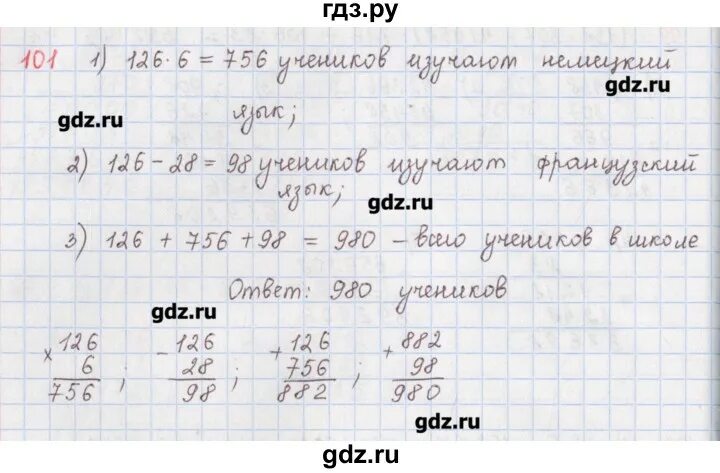 гдз.ру
101 1) 126·6 = 756 учеников изучают немецкий
gdz.ru
язык;
gdz.ru
2) 126 - 28 = 98 учеников изучают французский
язык;
gdz.ru
3) 126 + 756 + 98 = 980 - всего учеников в школе
Ответ: 980 учеников
gdz.ru
× 126 - 126 + 126 + 882
6 28 756 98
756 ; 98 ; 882 ; 980
gdz.ru
gdz.ru